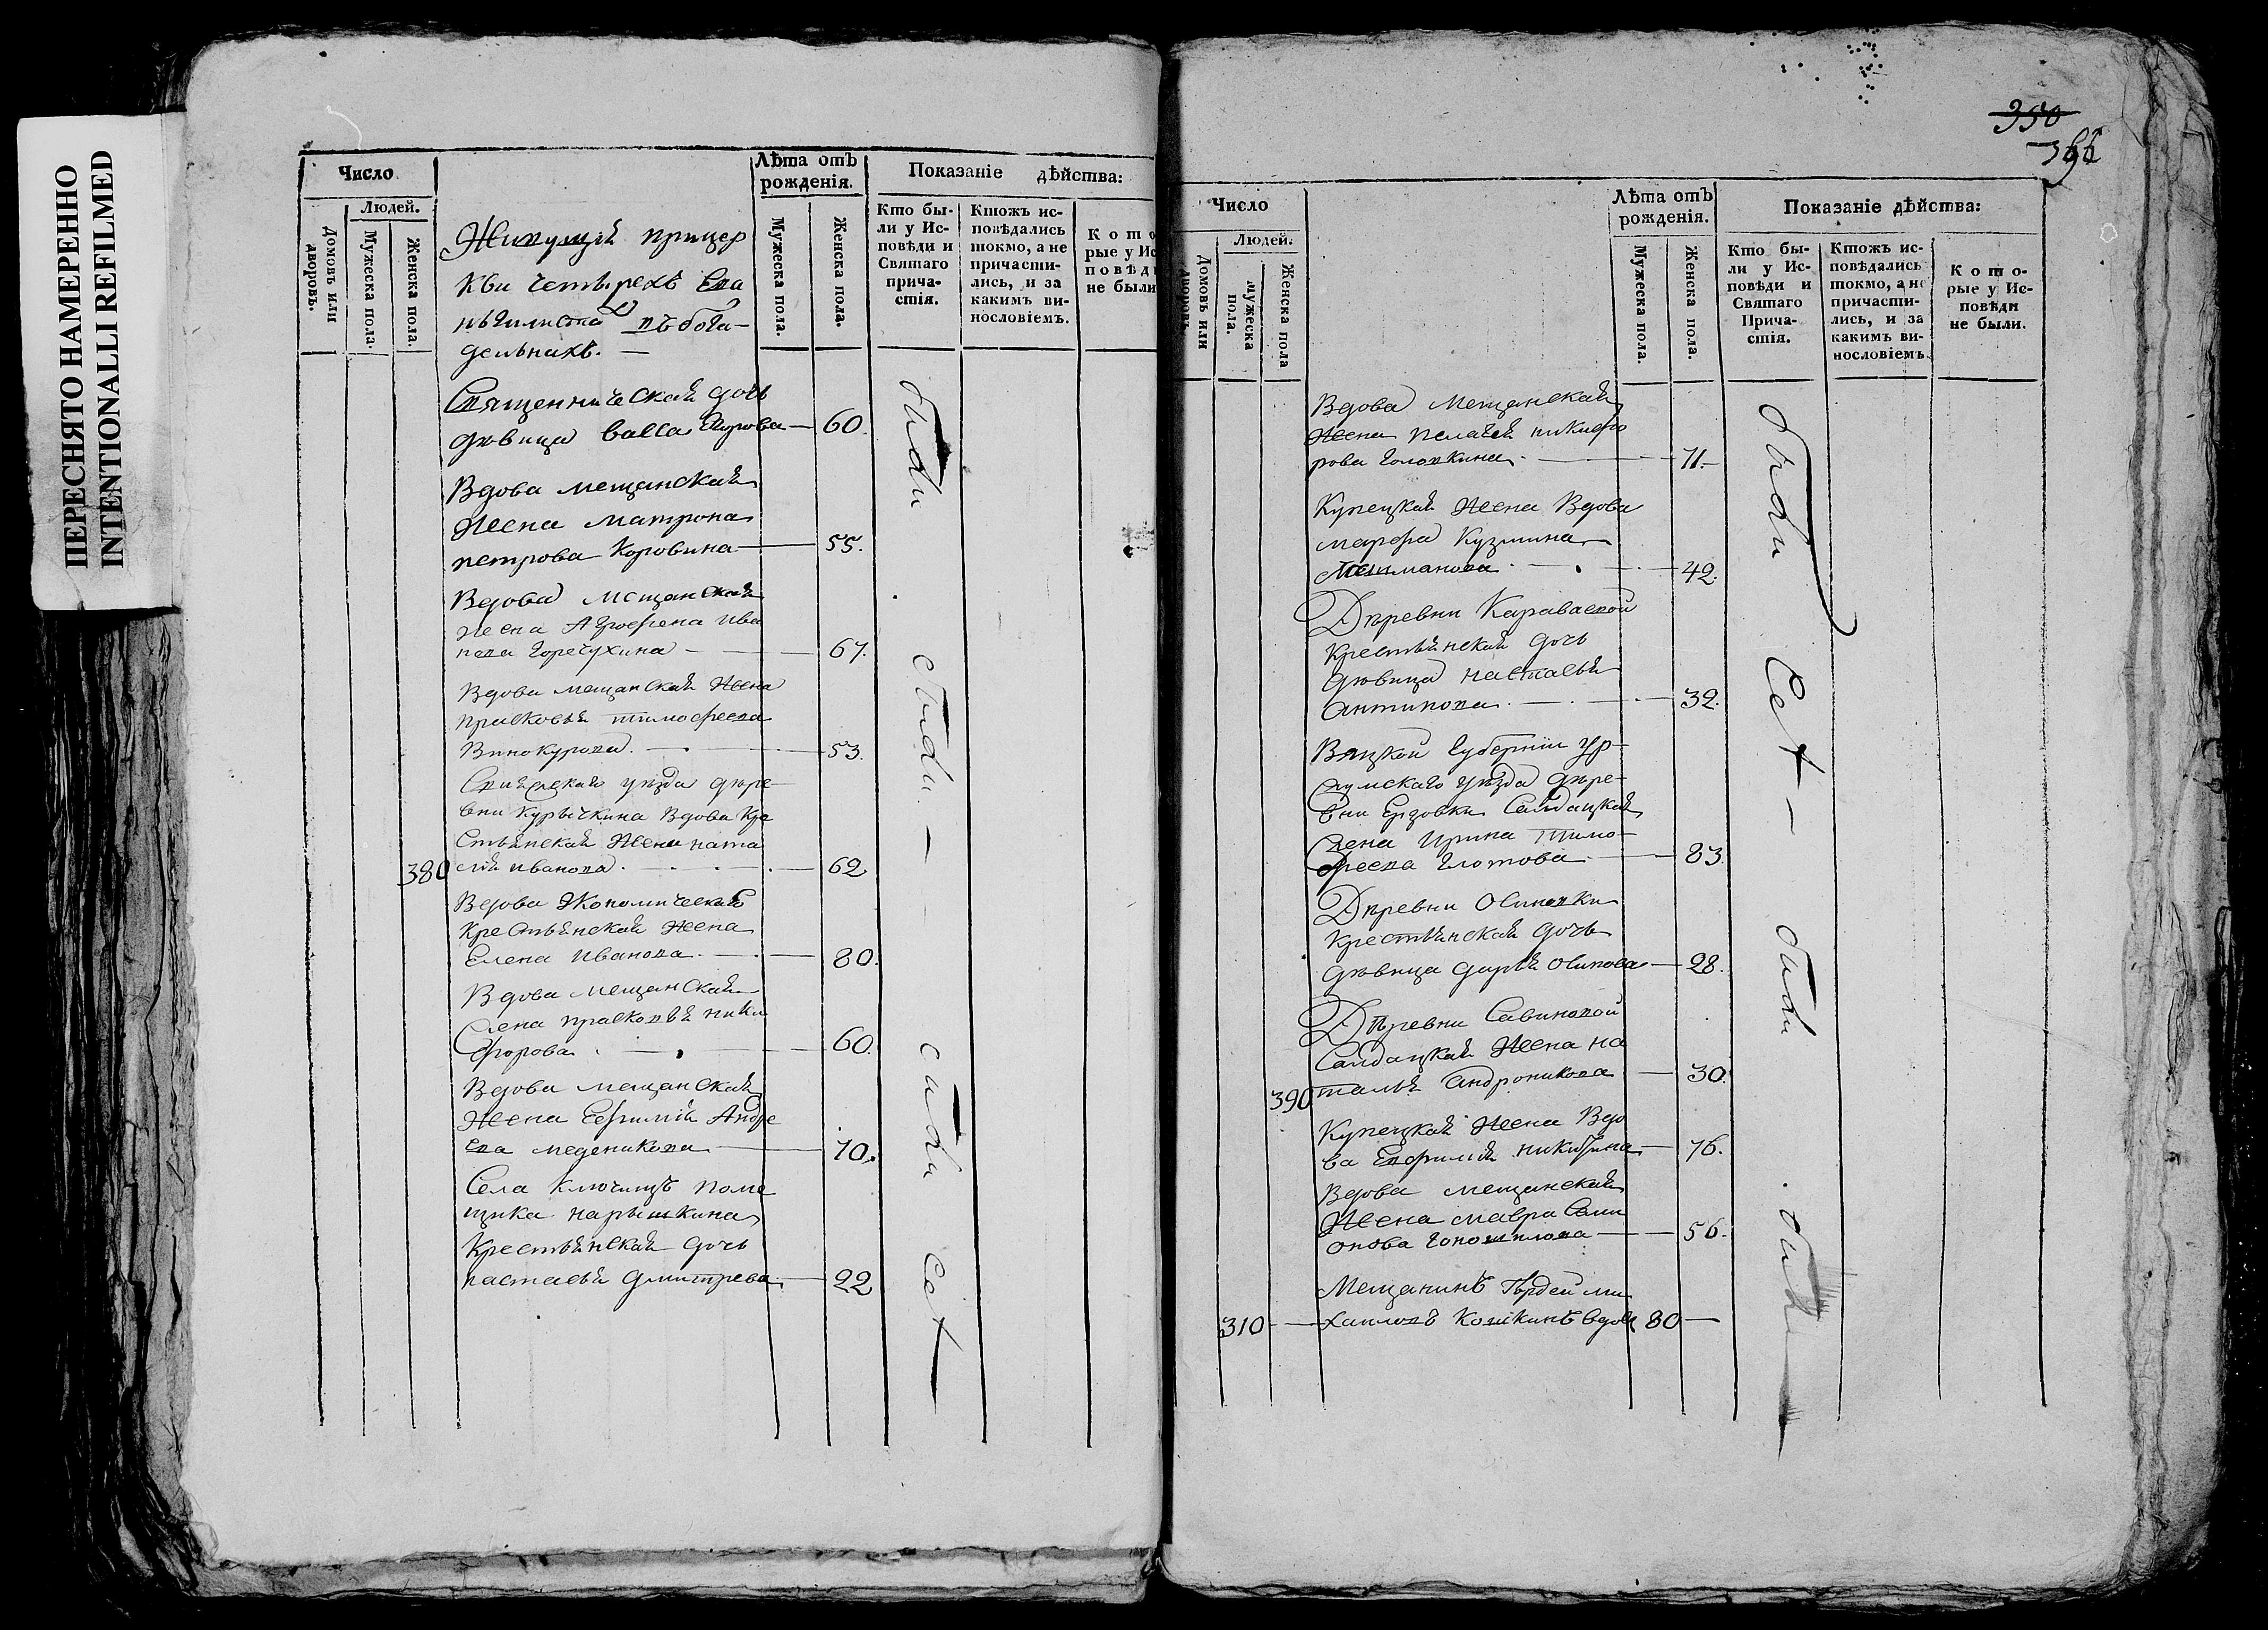 ПЕРЕСНЯТО НАМЕРЕННО
INTENTIONALLI REFILMED
Число
Людей.
Домовъ или дворовъ.
Мужеска пола.
Женска пола.
Лѣта отъ
рожденія.
Мужеска пола.
Женска пола.
Показаніе дѣйства:
Кто бы-
ли у Ис-
повѣди и
Святаго
прича-
стія.
Ктожъ ис-
повѣдались
токмо, а не
причасти-
лись, и за
какимъ ви-
нословіемъ.
Кото
рые у Ис
повѣди
не были
Живущія прицер
кви четырехъ Ева
нгилиста въ бога-
дельнахъ. —
Священническая дочь
дѣвица Васса — 60.
Вдова мещанская
жена матрона
петрова Коровина — 55.
Вдова мещанская
жена Агрофена ива
нова Горечухина — 67.
Вдова мещанская жена
прасковья тимофеева
Винокурова. — 53.
Свияжскаго уѣзда дере-
вни Курычкина Вдова кре
стьянская жена ната
380 лія иванова. — 62
Вдова Экономическая
крестьянская жена
Елена Иванова. — 80.
Вдова мещанская
жена прасковья ники
форова. — 60.
Вдова мещанская
жена Ефимія Андре
ева меденикова — 70.
Села Ключищъ поме
щика нарышкина
крестьянская дочь
настасья дмитрева — 22
были
были —
были
всѣ
350
Число
Людей.
Домовъ или дворовъ.
мужеска пола.
Женска пола
Лѣта отъ
рожденія.
Мужеска пола.
Женска пола.
Показаніе дѣйства:
Кто бы-
ли у Ис-
повѣди и
Святаго
Прича-
стія.
Ктожъ ис-
повѣдались
токмо, а не
причасти-
лись, и за
какимъ ви-
нословіемъ.
Кото-
рые у Ис-
повѣди
не были.
Вдова мещанская
жена пелагея никифо
рова Головкина. — 71.—
Купецкая жена Вдова
марфа Кузмина
— 42.
Деревни Караваевой
крестьянская дочь
дѣвица настасья
антипова. — 32.
Вяцкой губерніи ур-
жумскаго уѣзда дере-
вни Салдацкая
жена Ирина тимо-
феева Глотова — 83.
Деревни Осиновки
крестьянская дочь
дѣвица дарья осипова — 28.
Деревни Савиновой
Салдацкая жена на
390 талья андроникова — 30.
Купецкая жена Вдо
ва Евфимія никитина — 76.
Вдова мещанская
жена мавра
— 56.
Мещанинъ Гордей ми
310 — хаиловъ Кошкинъ вдовъ 80 —
были
всѣ —
были
были